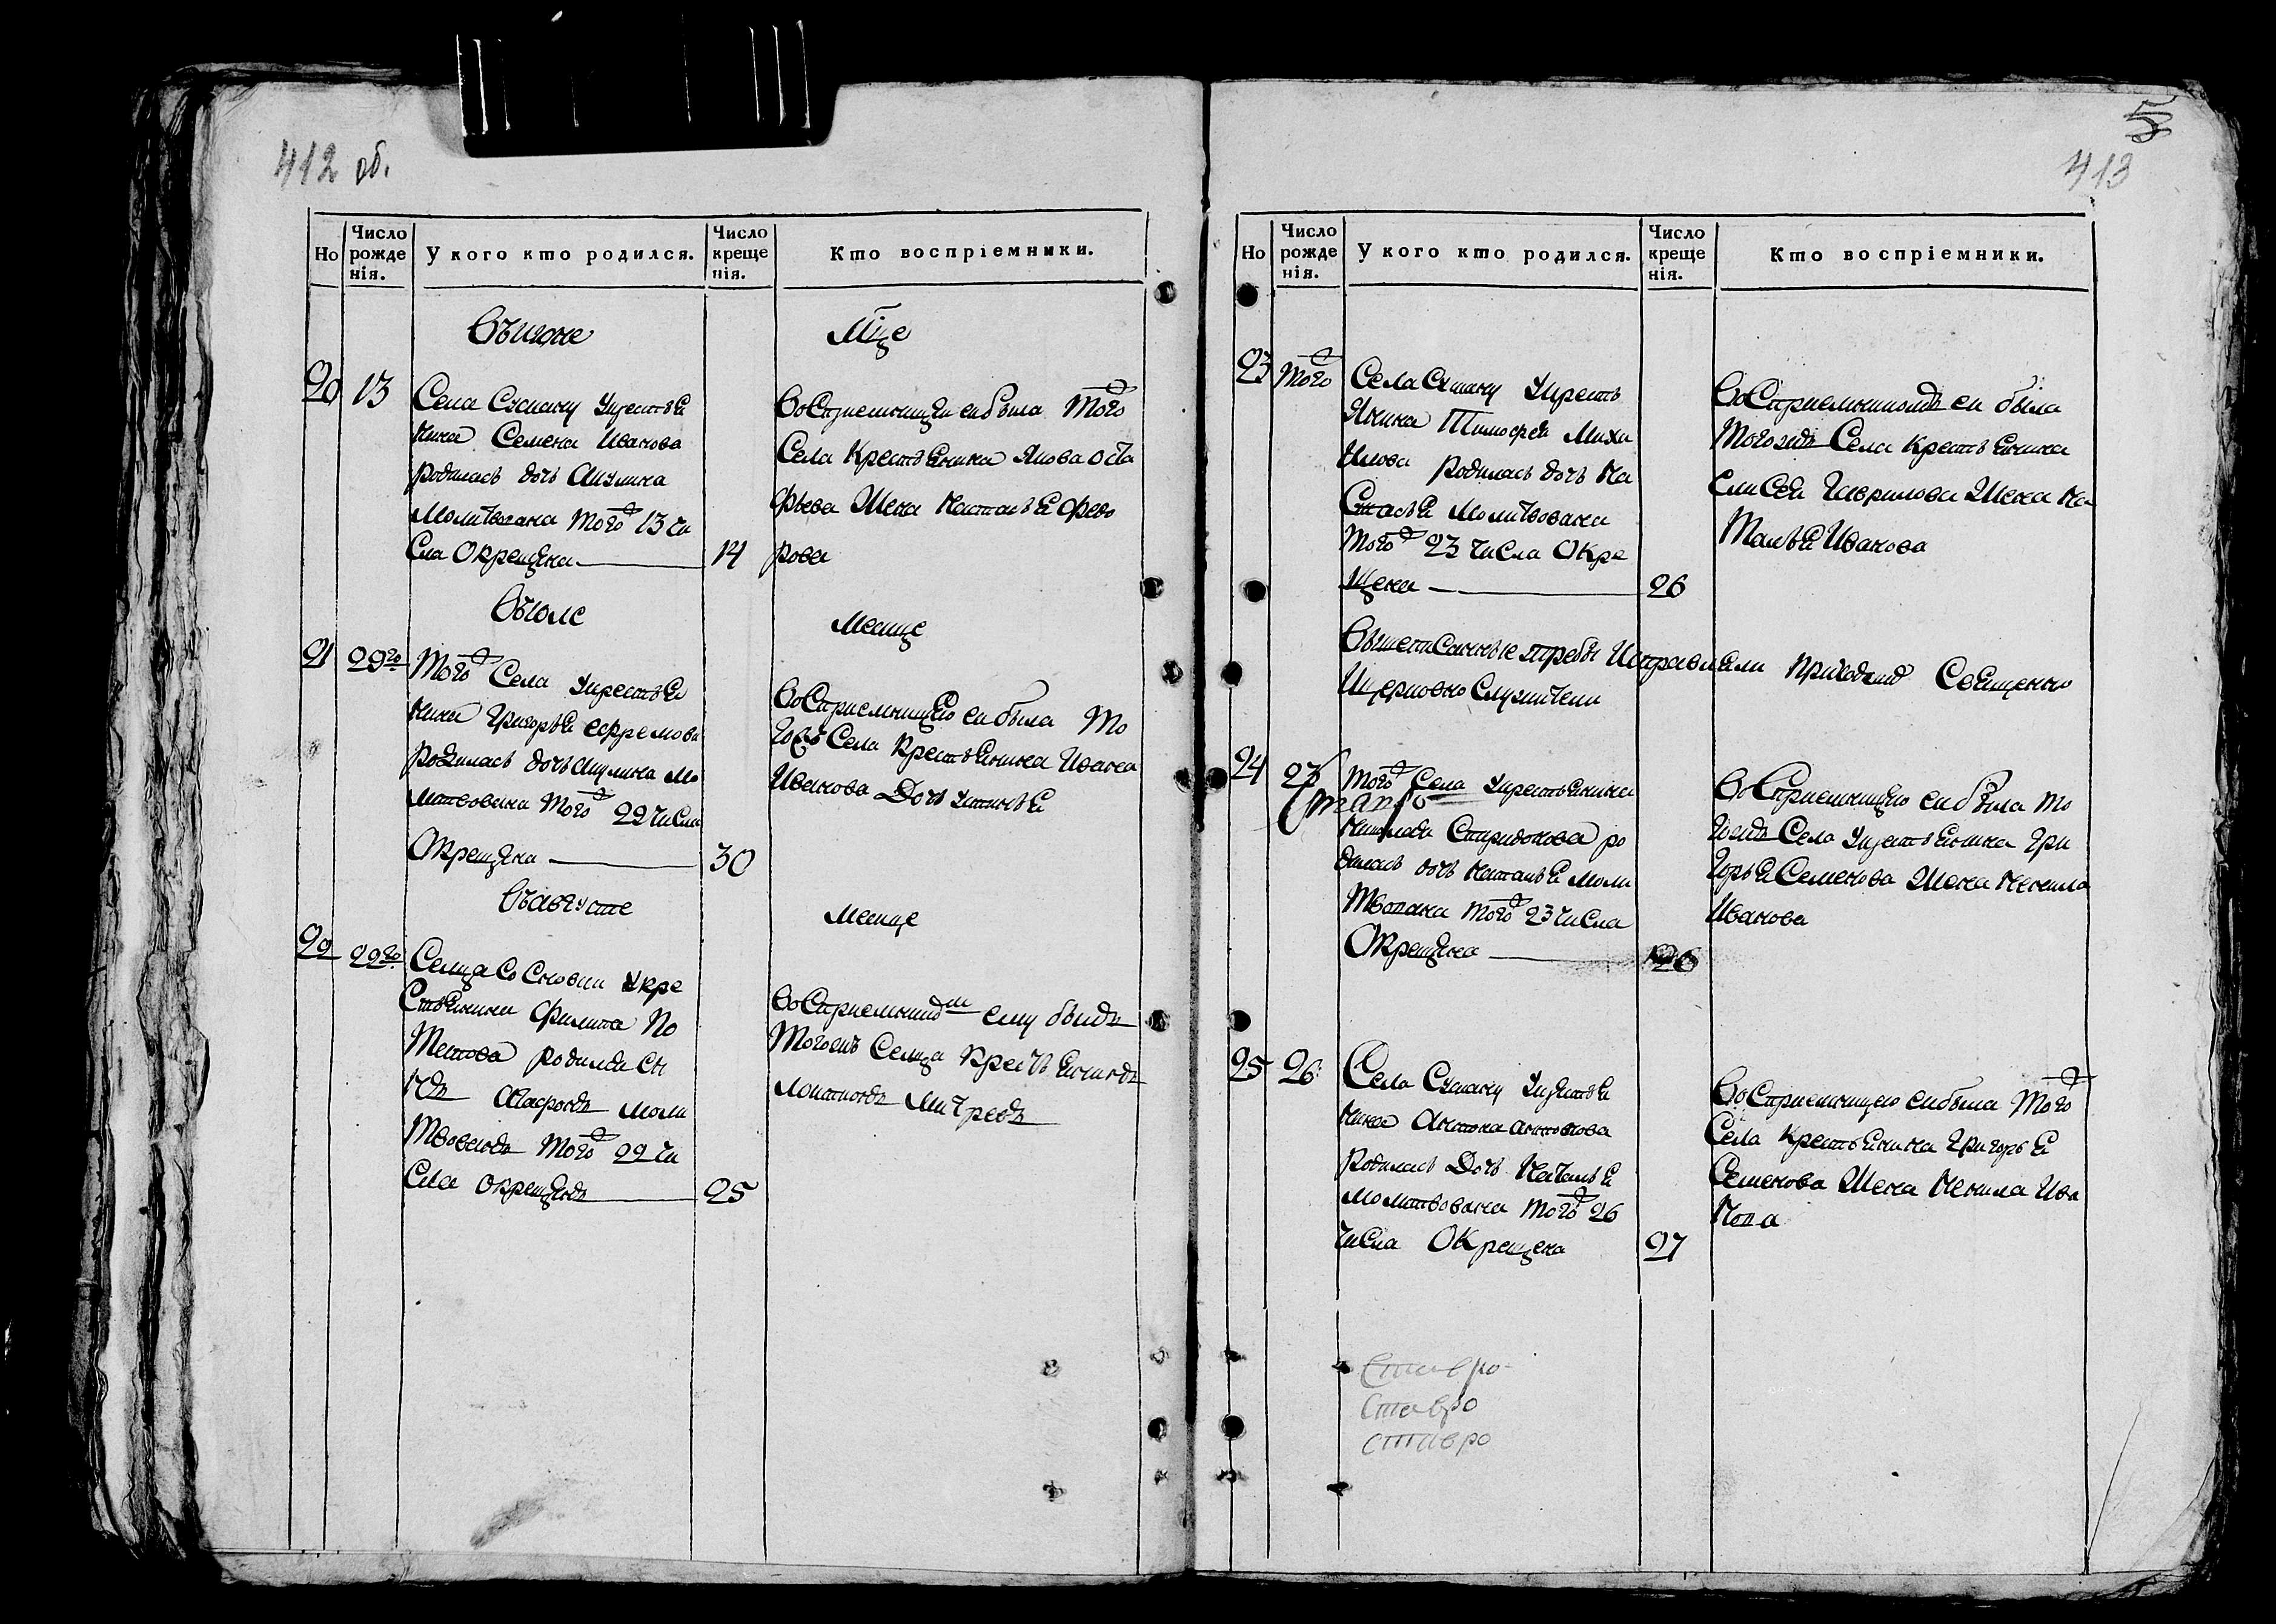 412 об.
Но
Число рожде нія.
У кого кто родился.
Число креще нія.
Кто воспріемники.
Въ июне
Мце
20 13 Села Сушану укрестья
нина Семена Иванова
родилась дочь Акулина
Молитвована того 13 чи
сла Окрещена 14
Восприемницеи еи была того
Села Крестьянина Якова
фьева Жена Наталья Федо
рова
Въ июле
Месице
21 29го Того Села укрестья
нина Григорья ефремова
родилась дочь Акулина мо
литвована того 29 числа
Окрещена 30
Восприемницею еи была то
гожъ Села Крестьянина Ивана
Иванова Дочь устинья
Въ августе
Месице
22 22го Селца Сосновки укре
стьянина Филипа По
тапова родился сы
нъ Агафонъ моли
твованъ того 22 чи
сла окрещенъ 25
Восприемникъ ему былъ
тогожъ Селца крестьянинъ
Митревъ
5
413
Но
Число рожде нія.
У кого кто родился.
Число креще нія.
Кто воспріемники.
23 того Села Сушану укресть
янина Тимофеи Миха
илова родилась дочь На
сталья молитвована
того 23 числа Окре
щена 26
Восприемникомъ еи была
тогожъ Села крестьянина
Елисеи Гаврилова Жена На
талья Иванова
Вышеписанные требы Исправляли приходския Священно
Ицерковно Служители
24 23 того Села укрестьянина
Николаи Спиридонова ро
дилась дочь Наталья моли
твована того 23 числа
Окрещена 26
Восприемницею еи была то
гожъ Села укрестьянина Гри
горья Семенова Жена Ненила
Иванова
25 26 Села Сушану укрестья
нина Антона антонова
родилась Дочь Наталья
молитвована того 26
числа Окрещена 27
Восприемницею еи была того
Села Крестьянина Григорья
Семенова Жена Ненила Ива
нова
Ставро
Ставро
ставро